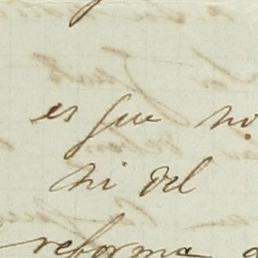 es que no
ni del
reforma